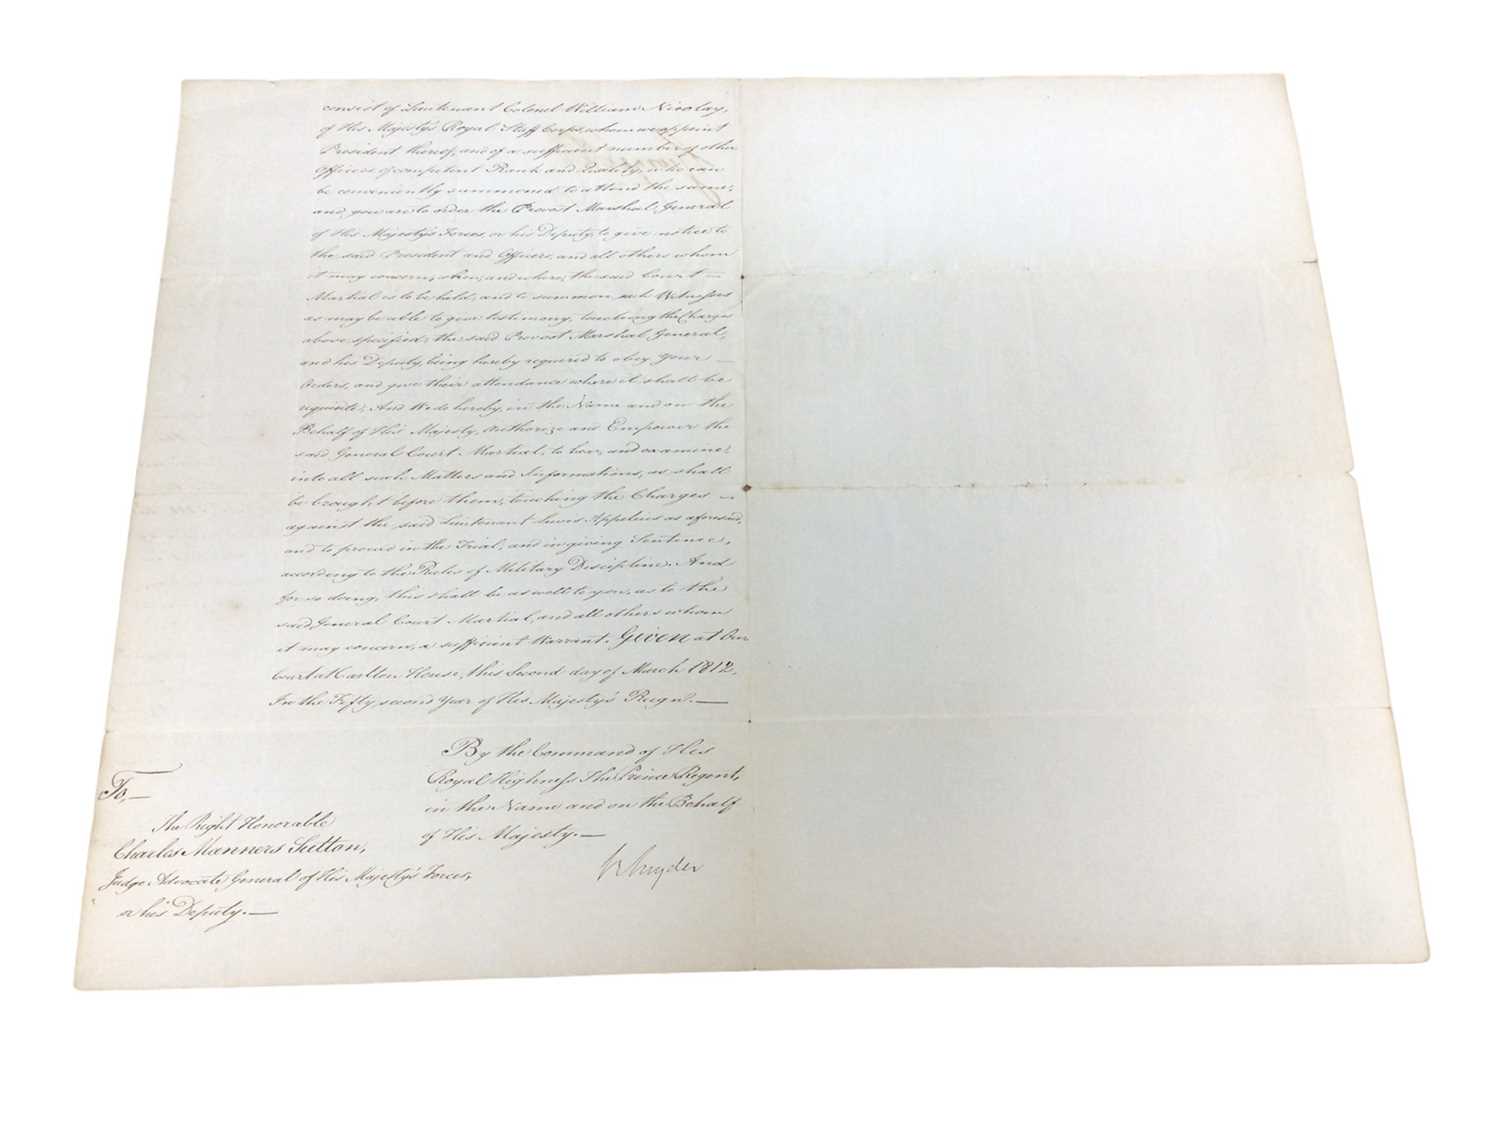 consist of Lieutenant Colonel William Nicolay,
of His Majesty's Royal Staff Corps, whom we appoint
President thereof, and of a sufficient number of other
Officers of competent Rank and Quality, who can
be conveniently summoned to attend the same;
and you are to order the Provost Marshal General
of His Majesty's Forces, or his Deputy, to give notice to
the said President and Officers, and all others whom
it may concern, when, and where, the said Court —
Martial is to be held, and to summon such Witnesses
as may be able to give testimony, touching the Charges
above specified; the said Provost Marshal General,
and his Deputy, being hereby required to obey your —
Orders, and give their attendance where it shall be
requisite; And We do hereby, in the Name and on the
Behalf of His Majesty, Authorize and Empower the
said General Court Martial, to hear, and examine
into all such Matters and Informations, as shall
be brought before them, touching the Charges —
against the said Lieutenant Lewis Appelius as aforesaid,
and to proceed in the Trial, and in giving Sentence,
according to the Rules of Military Discipline. And
for so doing, this shall be as well to you, as to the
said General Court Martial, and all others whom
it may concern, a sufficient Warrant. Given at Our
Court at Carlton House, this Second day of March 1812,
In the Fifty second Year of His Majesty's Reign. —
By the Command of His
Royal Highness The Prince Regent,
in the Name and on the Behalf
of His Majesty. —
To, —
The Right Honorable
Charles Manners Sutton,
Judge Advocate General of His Majesty's Forces,
or his Deputy. —